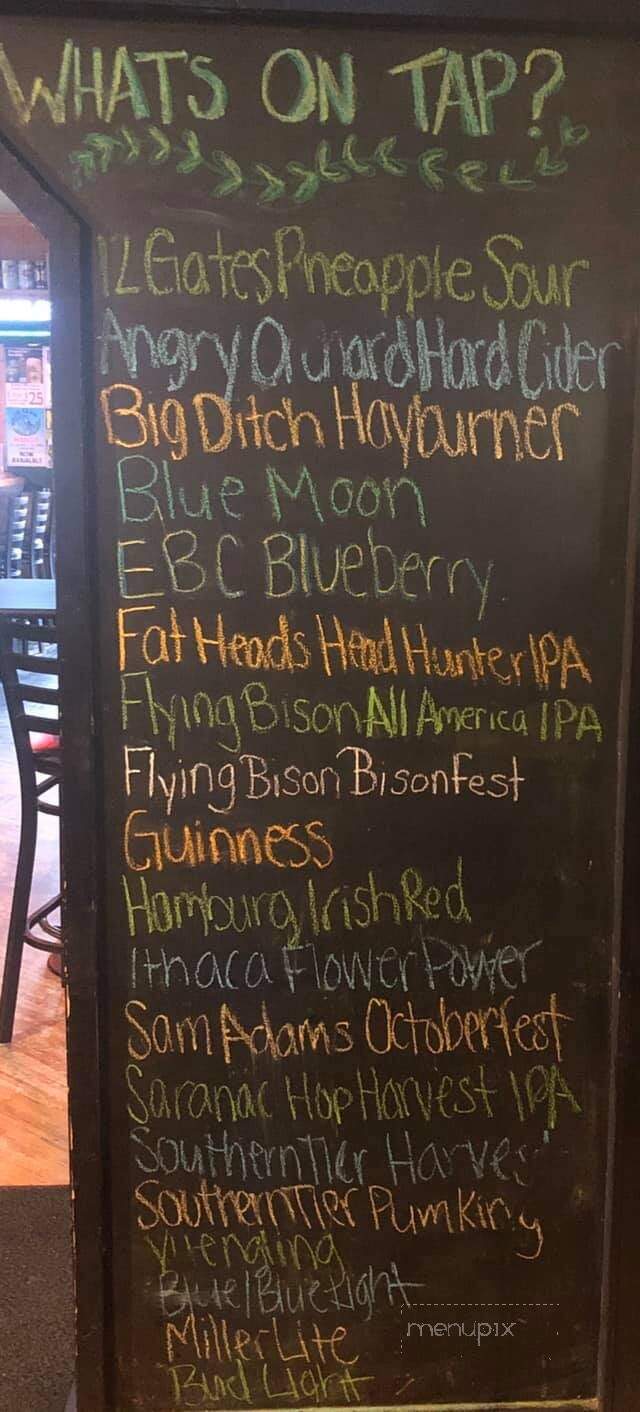 WHATS ON TAP?
12 Gates Pineapple Sour
Angry Orchard Hard Cider
Big Ditch Hayburner
Blue Moon
EBC Blueberry
Fat Heads Head Hunter IPA
Flying Bison All America IPA
Flying Bison Bisonfest
Guinness
Hamburg Irish Red
Ithaca Flower Power
Sam Adams Octoberfest
Saranac Hop Harvest IPA
Southern Tier Harvest
Southern Tier Pumking
Yuengling
Blue/Blue Light
Miller Lite
Bud Light
menupix
$25